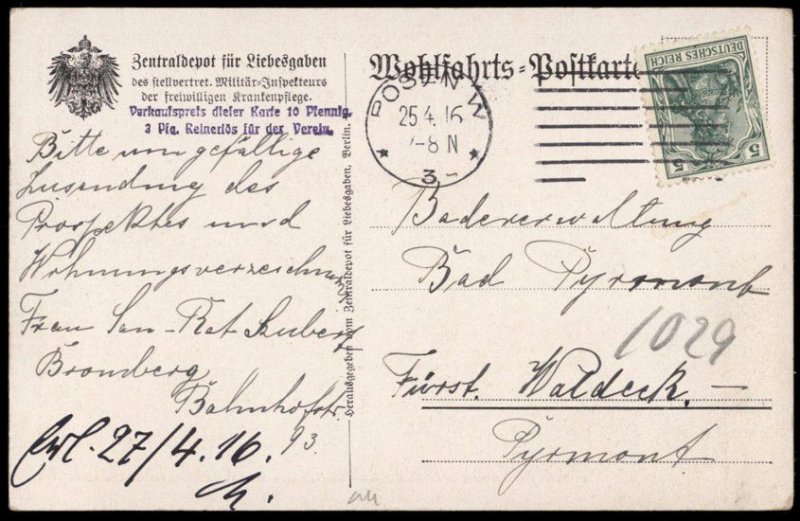 Zentraldepot für Liebesgaben
des stellvertret. Militär-Inspekteurs
der freiwilligen Krankenpflege.
Verkaufspreis dieser Karte 10 Pfennig
3 Pfg. Reinerlös für der Verein.
Bitte um gefällige
Zusendung des
Prospektes und
Wohnungsverzeichnis
Frau San-Rat
Bromberg
Bahnhofstr.
93.
27/4.16.
Herausgegeben vom Zentraldepot für Liebesgaben, Berlin.
Wohlfahrts-Postkarte
DEUTSCHES REICH
5 5
POSEN W
25.4.16
7-8 N
* 3 *
Badeverwaltung
Bad Pyrmont
1029
Fürst. Waldeck. —
Pyrmont